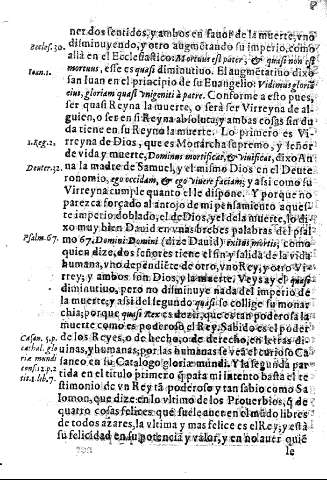 ner dos sentidos, y ambos en fauor de la muerte, vno
Eccles. 30. disminuyendo, y otro augmẽtando su imperio, como
allà en el Ecclesiastico: Mortuus est pater, & quasi non est
mortuus, esse es quasi diminutiuo. El augmẽtatiuo dixo
Ioan. 1. san Iuan en el principio de su Euangelio: Vidimus gloriã
eius, gloriam quasi Vnigeniti à patre. Conforme a esto pues,
ser quasi Reyna la muerte, o serà ser Virreyna de al-
guien, o ser en si Reyna absoluta; y ambas cosas sin du
da tiene en su Reyno la muerte. Lo primero es Vi-
1. Reg. 2. rreyna de Dios, que es Monarcha supremo, y señor
de vida y muerte, Dominus mortificat, & viuificat, dixo An
Deuter. 32. na la madre de Samuel, y el mismo Dios en el Deute
ronomio, ego occidam, & ego viuere faciam; y assi como su
Virreyna cumple quanto el le dispone. Y porque no
parezca forçado al antojo de mi pensamiento aques-
te imperio doblado, el de Dios, y el de la muerte, lo di-
xo muy bien Dauid en vnas brebes palabras del psal
Psalm. 67. mo 67. Domini Domini (dize Dauid) exitus mortis, como
quien dize, dos señores tiene el fin y salida de la vida
humana, vno dependiẽte de otro, vno Rey, y otro Vir
rey; y ambos son Dios, y la muerte. Veys ay el quasi
diminutiuo, pero no disminuye nada del imperio de
la muerte; y assi del segundo quasi se collige su monar
chia; porque quasi Rex es dezir, que es tan poderosa la
muerte como es poderoso el Rey. Sabido es el poder
Casan. 5. p. de los Reyes, o de hecho, o de derecho, en letras di-
cathal. glo uinas, y humanas; por las humanas se verà el curioso Ca
riæ mundi sanco en su Catalogo gloriæ mundi. Y la segunda par
te en el titulo primero q̃ para mi intento basta el te
stimonio de vn Rey tã poderoso y tan sabio como Sa
lomon, que dize en lo vltimo de los Prouerbios, q̃ de
quatro cosas felices que suele auer en el mũdo libres
de todos azares, la vltima y mas felice es el Rey, y està
su felicidad en su potencia y valor, y en no auer quiẽ
le